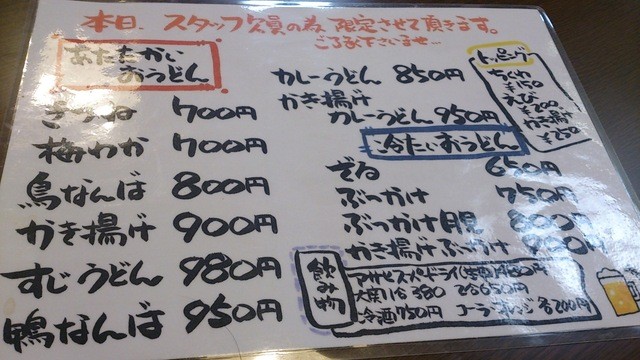 本日、スタッフ欠員の為、限定させて頂きます。
ご了承下さいませー
あたたかい
おうどん
きつね 700円
梅わか 700円
鳥なんば 800円
かき揚げ 900円
すじうどん 980円
鴨なんば 950円
カレーうどん 850円
かき揚げ
カレーうどん 950円
トッピング
ちくわ
¥150
えび
¥200
かき揚げ
¥250
冷たいおうどん
ざる 650円
ぶっかけ 750円
ぶっかけ月見 800円
かき揚げぶっかけ 900円
飲み物
アサヒスーパードライ
380 2合650円
冷酒750円 コーラ・オレンジ 各200円